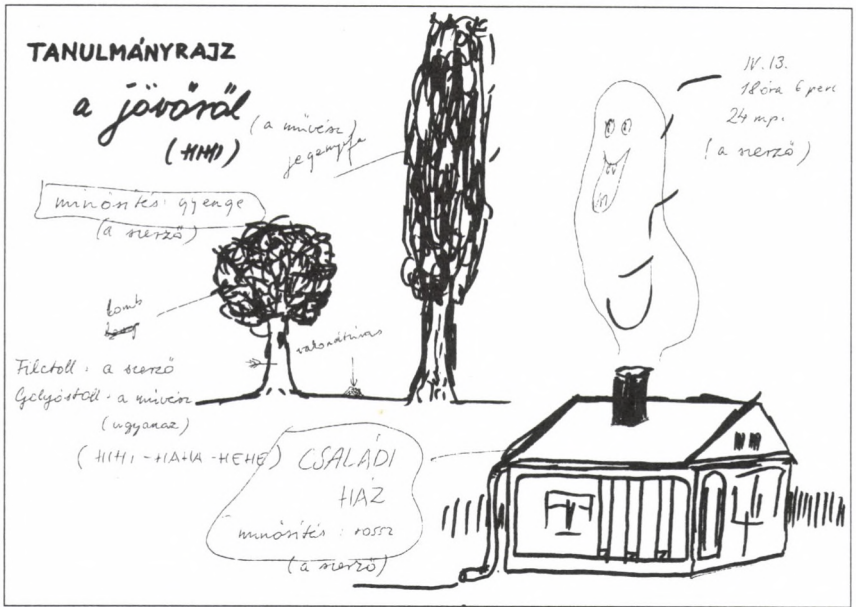 TANULMÁNYRAJZ
a jövőről
(HIHI)
(a művész)
jegenyefa
IV. 13.
18 óra 6 perc
24 mp.
(a szerző)
minősítés: gyenge
(a szerző)
lomb
vakondtúrás
Filctoll - a szerző
Golyóstoll - a művész
(ugyanaz)
(HIHI - HAHA - HEHE)
CSALÁDI
HÁZ
minősítés: rossz
(a szerző)